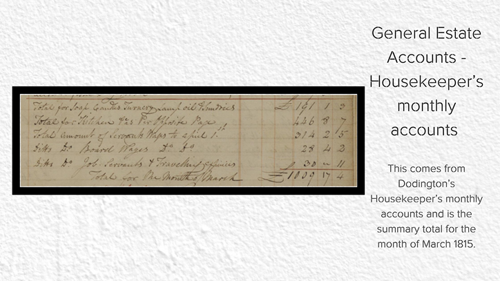 Total for Soap Candles Turnery Lamp oil & Sundries £ 191 1 2
Total for Kitchen &c as Per Pages 446 8 7
Total amount of Servants Wages to April 1st 314 2 5
Ditto Do Board Wages Do Do 28 4 2
Ditto Do Job Servants & Travelling Expenses 30 - 11
Totals for the Month of March £ 1009 17 4
General Estate
Accounts -
Housekeeper's
monthly
accounts
This comes from
Dodington's
Housekeeper's monthly
accounts and is the
summary total for the
month of March 1815.